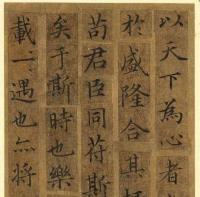 以天下為心者
於盛隆合其
苟君臣同符斯
矣于斯時也樂
載一遇也亦將